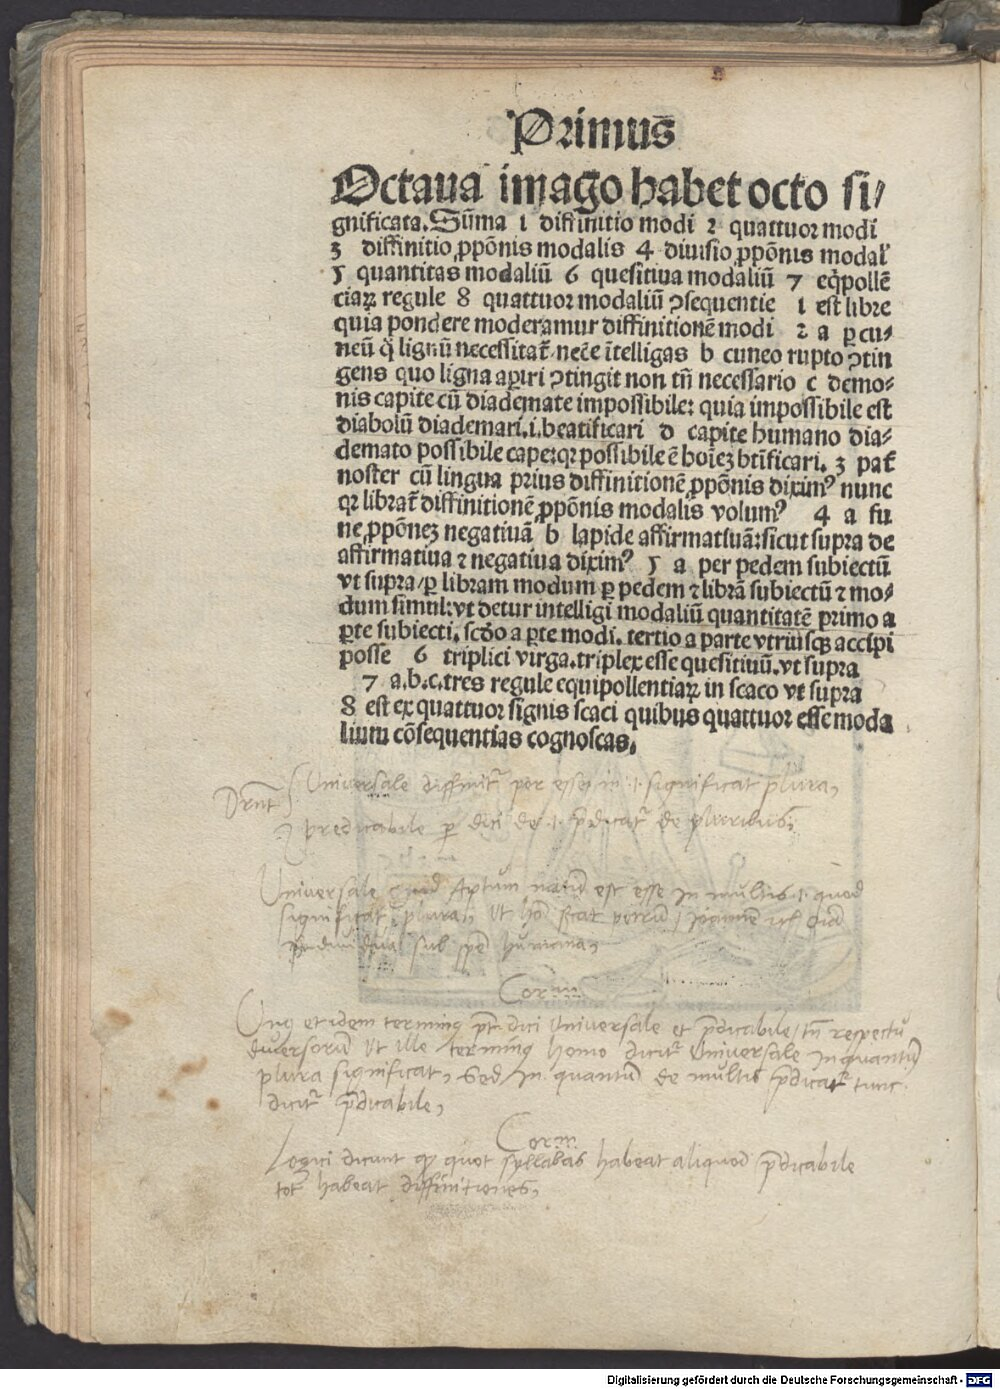 Primus
Octaua imago habet octo si/
gnificata. Sūma 1 diffinitio modi 2 quattuor modi
3 diffinitio ꝓpōnis modalis 4 diuisio ꝓpōnis modal'
5 quantitas modaliū 6 quesitiua modaliū 7 eq̇pollē
ciaꝝ regule 8 quattuor modaliū ꝯsequentie 1 est libre
quia pondere moderamur diffinitionē modi 2 a ꝑ cu⸗
neū q̇ lignū necessitat᷑ nec̄e ītelligas b cuneo rupto ꝯtin
gens quo ligna aꝑiri ꝯtingit non tn̄ necessario c demo⸗
nis capite cū diademate impossibile: quia impossibile est
diabolū diademari .i. beatificari d capite humano dia⸗
demato possibile cape: qꝛ possibile ē hoīeꝫ btīficari. 3 pat᷑
noster cū lingua prius diffinitionē ꝓpōnis diximꝰ nunc
qꝛ librat᷑ diffinitionē ꝓpōnis modalis volumꝰ 4 a fu
ne ꝓpōneꝫ negatiuā b lapide affirmatsuā: sicut supra de
affirmatiua ⁊ negatiua diximꝰ 5 a per pedem subiectū
vt supra/ ꝑ libram modum ꝑ pedem ⁊ librā subiectū ⁊ mo⸗
dum simul: vt detur intelligi modaliū quantitatē primo a
ꝑte subiecti. scd̄o a ꝑte modi. tertio a parte vtriusqꝫ accipi
posse 6 triplici virga. triplex esse quesitiuū. vt supra
7 a.b.c. tres regule equipollentiaꝝ in scaco vt supra
8 est ex quattuor signis scaci quibus quattuor esse moda
lium cōsequentias cognoscas.
Universale diffinit᷑ per esse in .i. significat plura,
Predicabile ꝑ dici de .i. p̄dicat᷑ de pluribus,
Universale quid aptum natū est esse in multis .i. quod
significat plura, ut hō sicat petrum / Joannē
sub spē humana,
Corm̄
Unꝰ et idem terminꝰ pt̄ dici Universale et p̄dicabile / tn̄ respectu
diversorū ut ille terminꝰ homo dicit᷑ Universale inquantū
plura significat, Sed in quantū de multis p̄dicat᷑ tunc
dicit᷑ p̄dicabile,
Corm̄
Logici dicunt ꝙ quot syllabas habeat aliquod p̄dicabile
tot habeat diffinitiones,
Digitalisierung gefördert durch die Deutsche Forschungsgemeinschaft - DFG